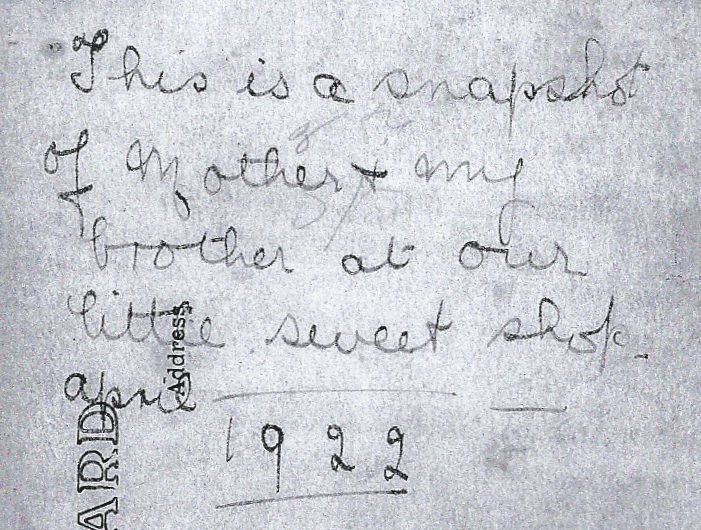 This is a snapshot
of Mother & my
brother at our
little sweet shop.
april
1922
Address
ARD